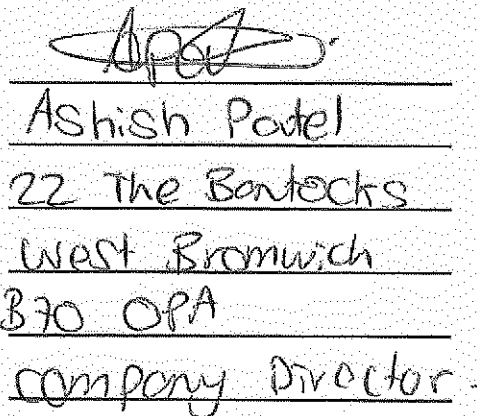 Ashish Patel
22 The Bantocks
West Bromwich
B70 0PA
Company Director.